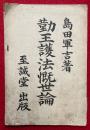 島田軍吉著
勤王護法慨世論
至誠堂出版